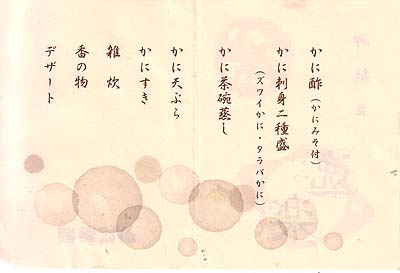 かに酢(かにみそ付)
かに刺身二種盛
(ズワイかに・タラバかに)
かに茶碗蒸し
かに天ぷら
かにすき
雑炊
香の物
デザート